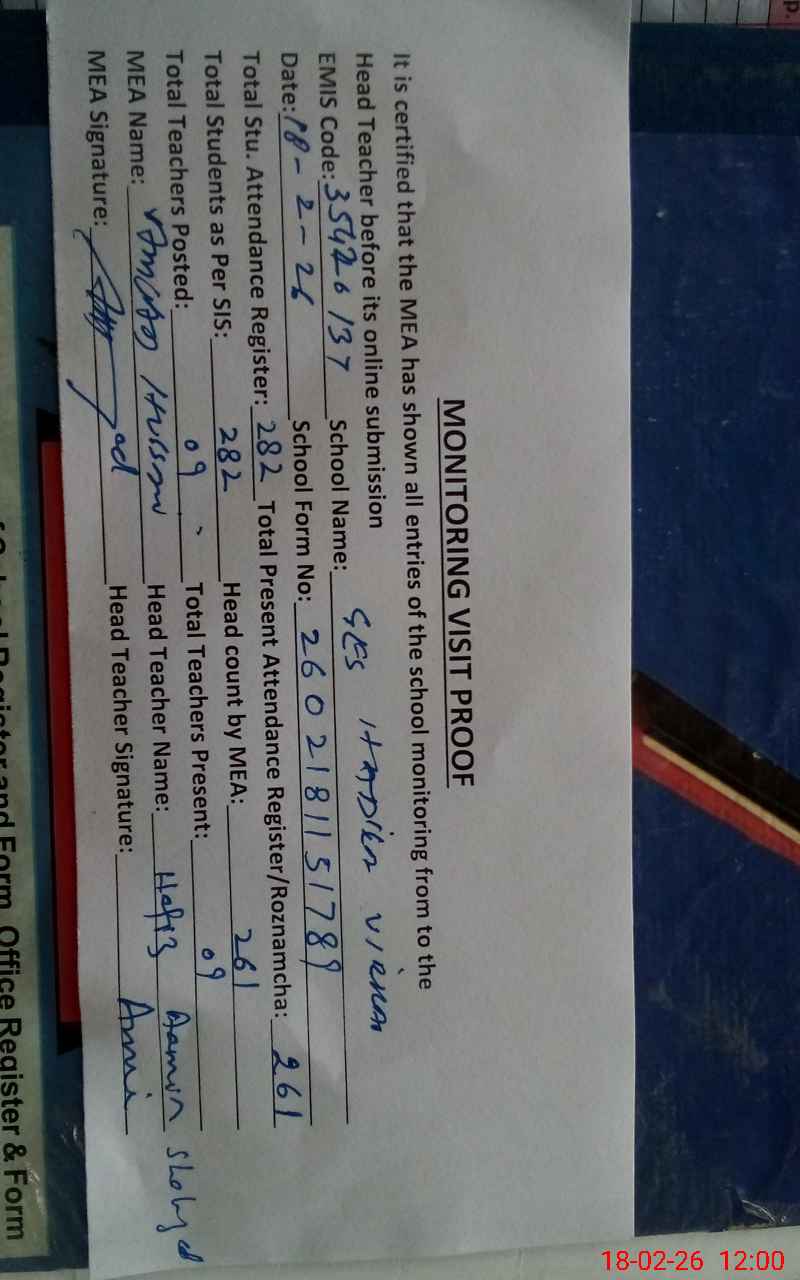 MONITORING VISIT PROOF
It is certified that the MEA has shown all entries of the school monitoring from to the
Head Teacher before its online submission
EMIS Code: 35420137 School Name: GES
Date: 18-2-26 School Form No: 2602181151789
Total Stu. Attendance Register: 282 Total Present Attendance Register/Roznamcha: 261
Total Students as Per SIS: 282 Head count by MEA: 261
Total Teachers Posted: 09 Total Teachers Present: 09
MEA Name: Head Teacher Name: Hafiz
MEA Signature: Head Teacher Signature:
Register and Form, Office Register & Form
18-02-26 12:00